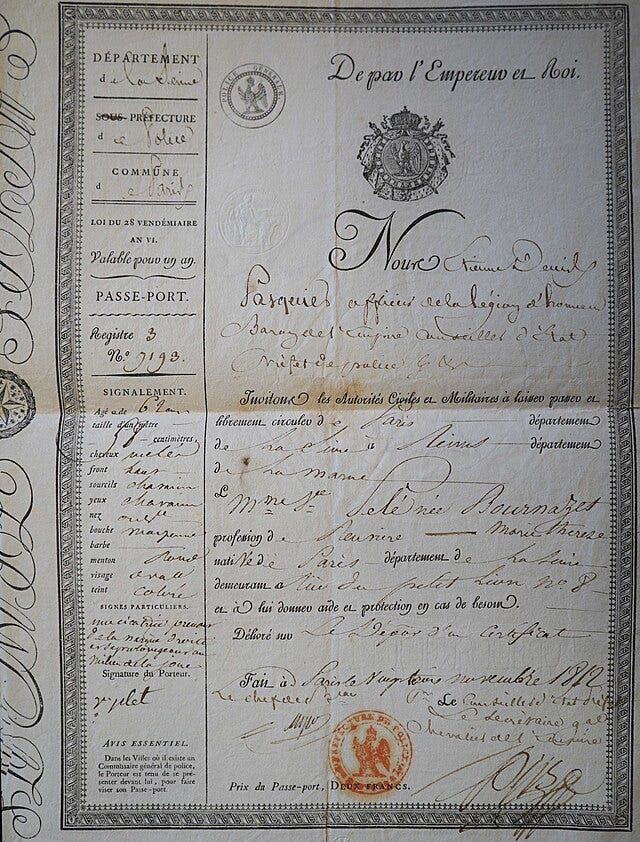 DÉPARTEMENT
de la Seine
SOUS-PRÉFECTURE
de Police
COMMUNE
de Paris
LOI DU 28 VENDÉMIAIRE
AN VI.
Valable pour un an.
PASSE-PORT.
Registre 3
N.º 7193.
SIGNALEMENT.
Agé de 62 ans
taille d'un mètre
centimètres
cheveux
front haut
sourcils
yeux
nez
bouche moyenne
barbe
menton Rond
visage ovale
teint coloré
SIGNES PARTICULIERS.
une cicatrice
de la narine droite
au
milieu de la joue
Signature du Porteur.
AVIS ESSENTIEL.
Dans les Villes où il existe un
Commissaire général de police,
le Porteur est tenu de se pré-
senter devant lui, pour faire
viser son Passe-port.
POLICE GÉNÉRALE
De par l'Empereur et Roi.
Nous Etienne Denis
Pasquier officier de la Légion d'honneur
Baron de l'Empire Conseiller d'Etat
Préfet de police
Invitons les Autorités Civiles et Militaires à laisser passer et
librement circuler de Paris département
de la Seine à Reims département
de la marne
L Mme Ve née Bournazet
profession de Rentiere Marie therese
native de Paris département de la Seine
demeurant à Rue du petit Lion no. 8
et à lui donner aide et protection en cas de besoin.
Délivré sur Le Dépôt d'un Certificat
Fait à Paris le Vingt trois novembre 1812
Le chef de Le Conseiller d'Etat
Le Secrétaire gal
Chevalier de l'Empire
PRÉFECTURE DE POLICE
Prix du Passe-port, DEUX FRANCS.